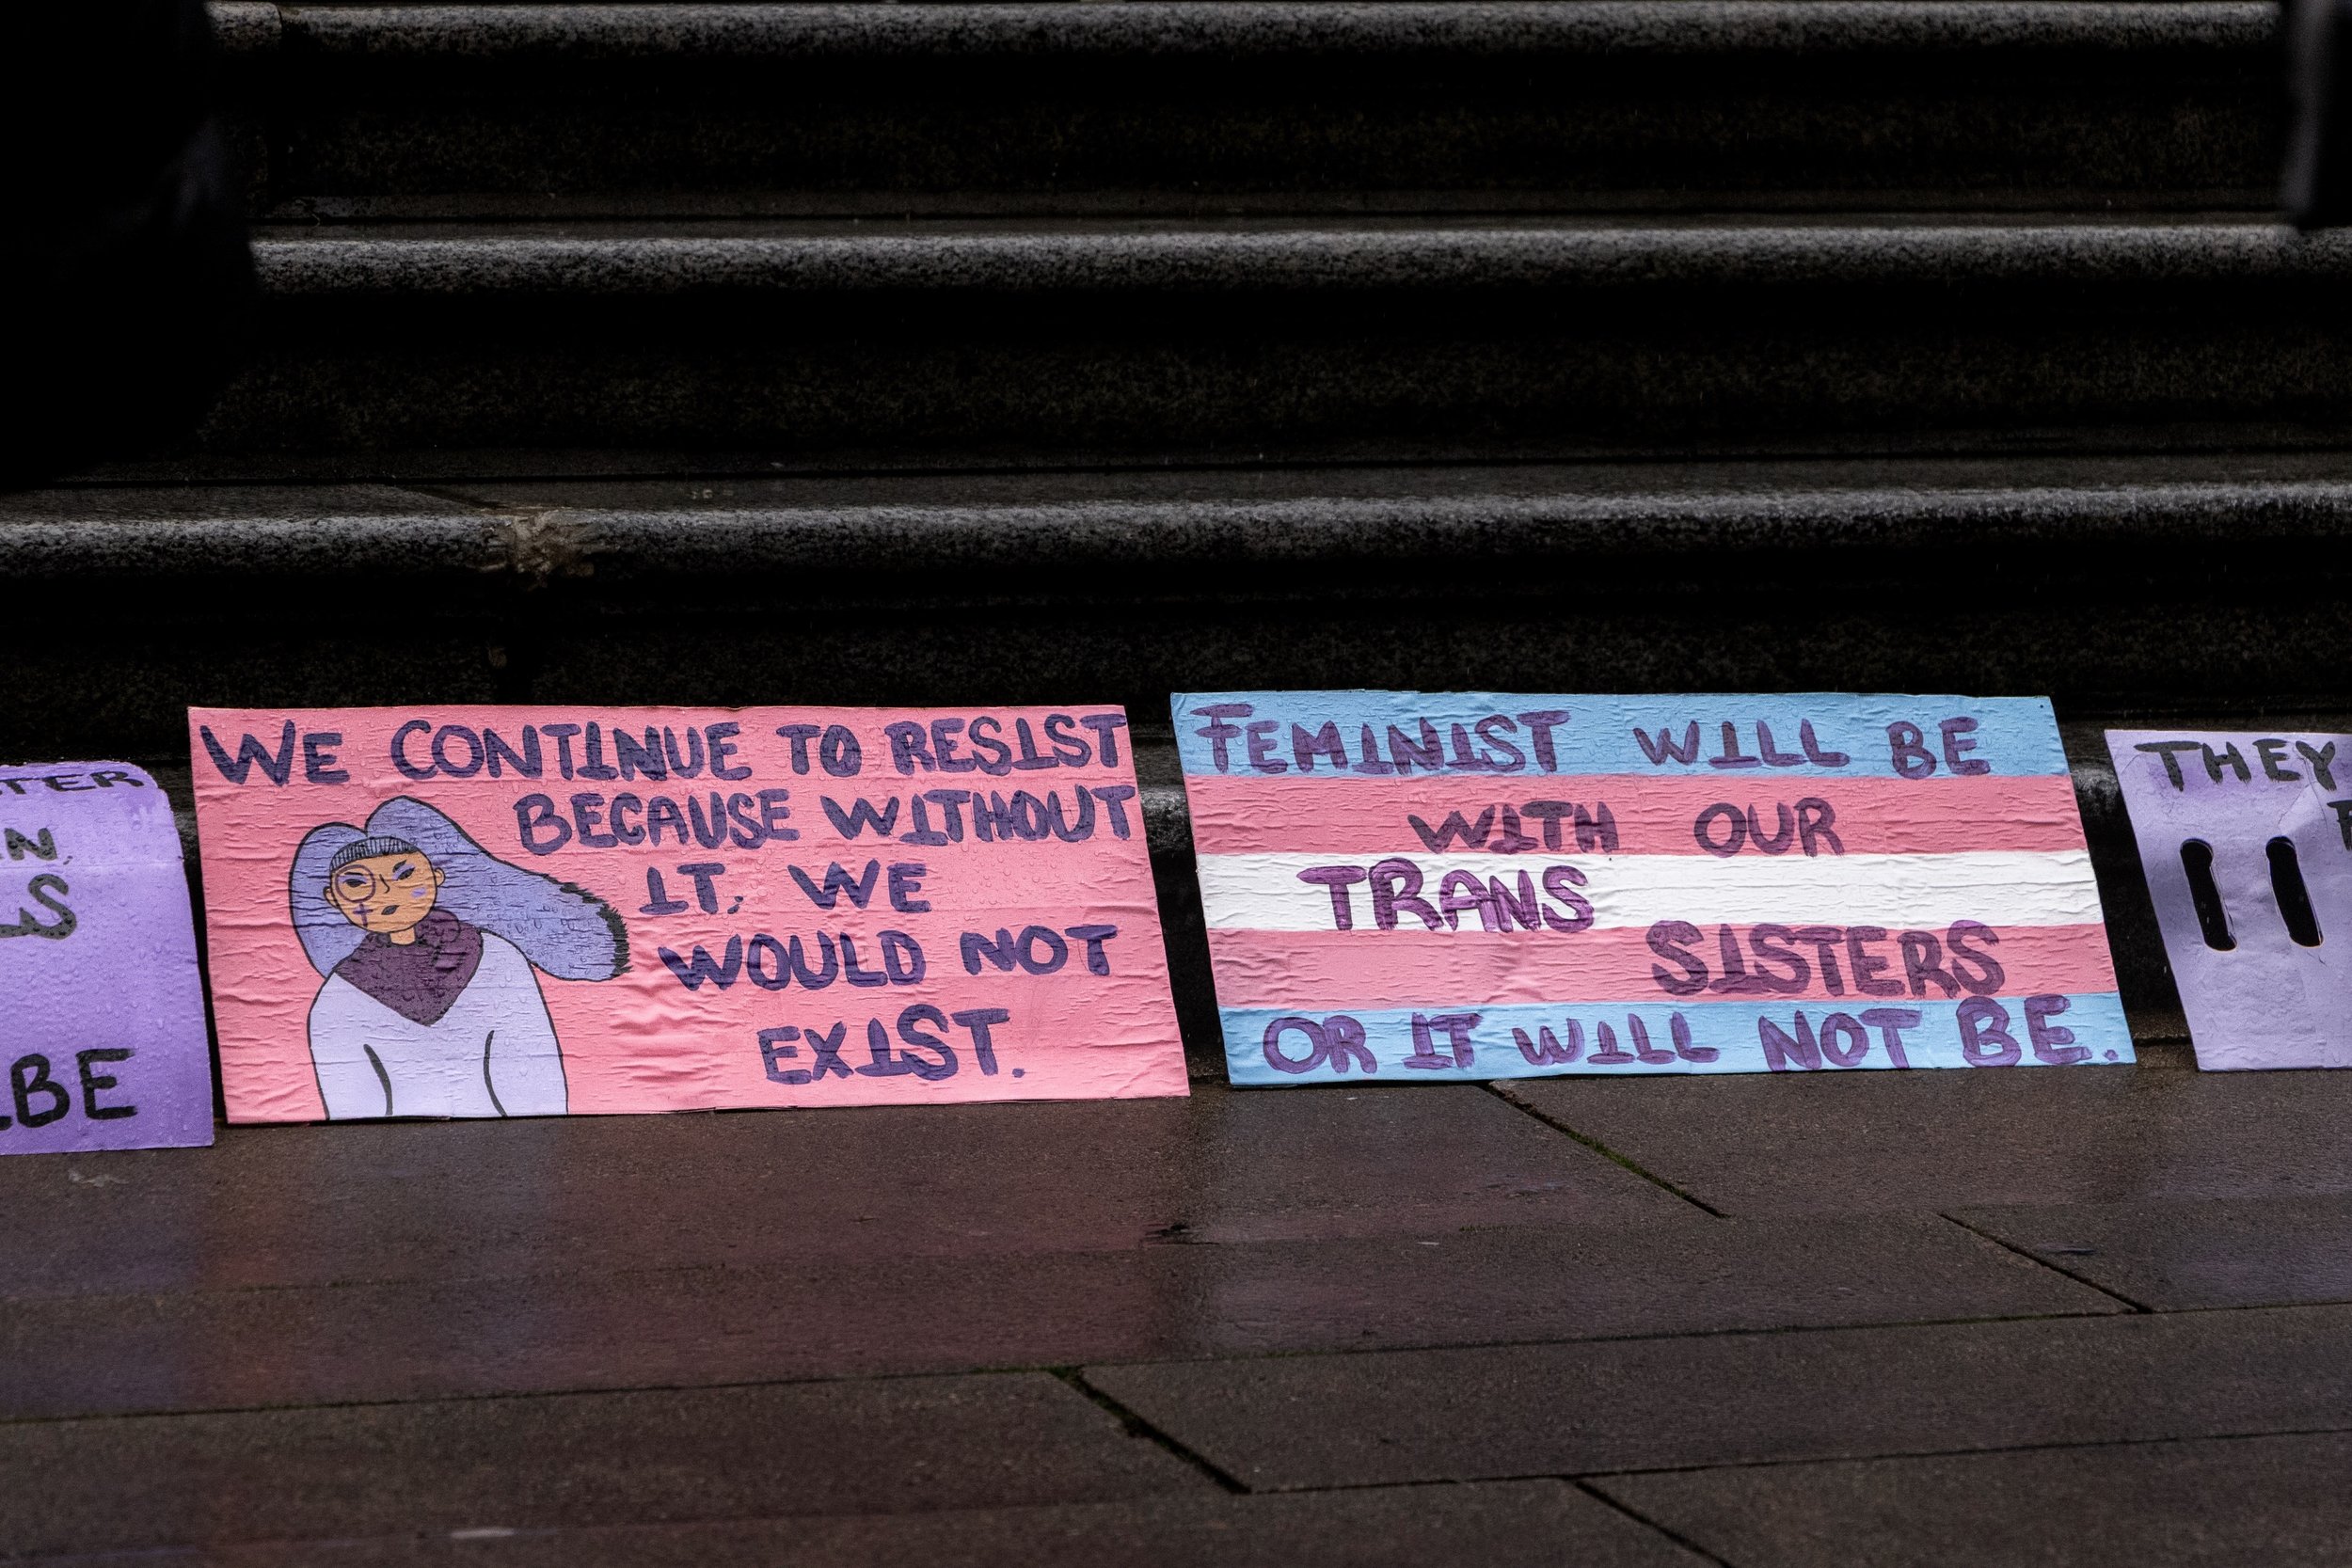 BE
WE CONTINUE TO RESIST
BECAUSE WITHOUT
IT, WE
WOULD NOT
EXIST.
FEMINIST WILL BE
WITH OUR
TRANS
SISTERS
OR IT WILL NOT BE.
THEY